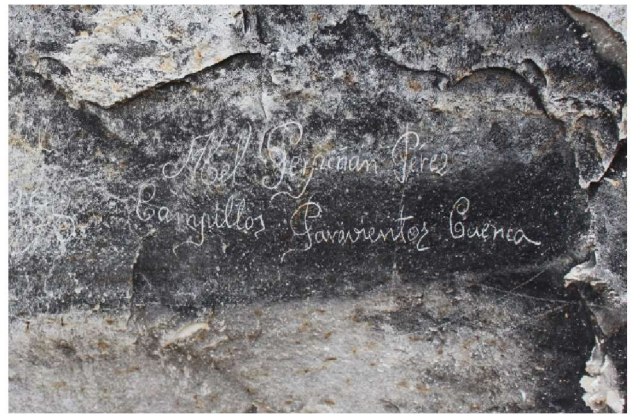 Abel Perpiñan Pérez
Campillos Paravientos Cuenca